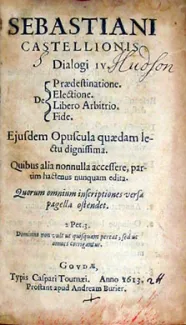 SEBASTIANI
CASTELLIONIS
Dialogi IV.
Hudson
De
Prædestinatione.
Electione.
Libero Arbitrio.
Fide.
Ejusdem Opuscula quædam le-
ctu dignissima.
Quibus alia nonnulla accessere, par-
tim hactenus nunquam edita.
Quorum omnium inscriptiones versa
pagella ostendet.
2 Pet. 3.
Dominus non vult ut quisquam pereat, sed ut
omnes corrigantur.
GOVDÆ,
Typis Caspari Tournæi. Anno 1613.
Prostant apud Andream Burier.